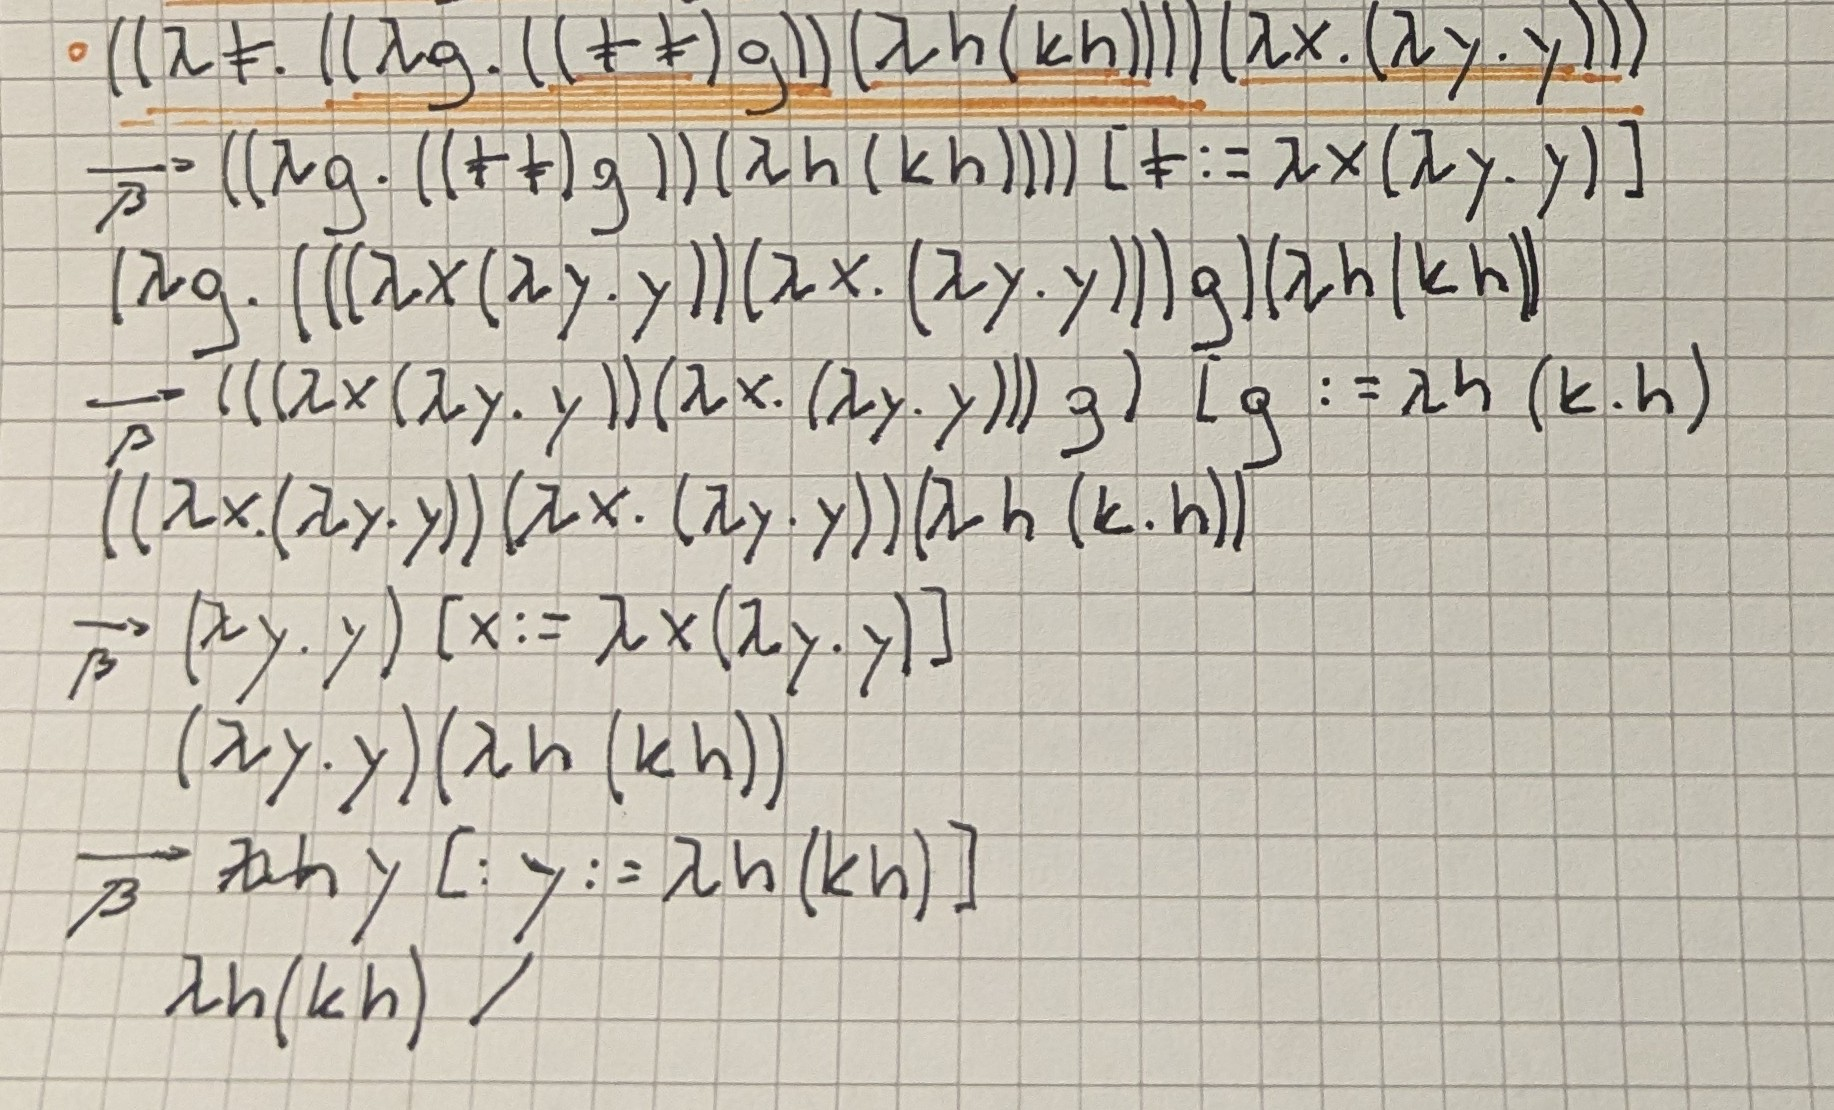 ((λf. ((λg. ((f f) g)) (λh (kh)))) (λx. (λy. y)))
→β ((λg. ((f f) g )) (λh (kh)))) [f := λx (λy. y) ]
(λg. (((λx (λy. y)) (λx. (λy. y))) g) (λh (kh))
→β (((λx (λy. y)) (λx. (λy. y))) g ) [g := λh (k.h)
((λx. (λy. y)) (λx. (λy. y)) (λh (k.h))
→β (λy. y) [x := λx (λy. y) ]
(λy. y) (λh (kh))
→β y [: y := λh (kh) ]
λh(kh) /